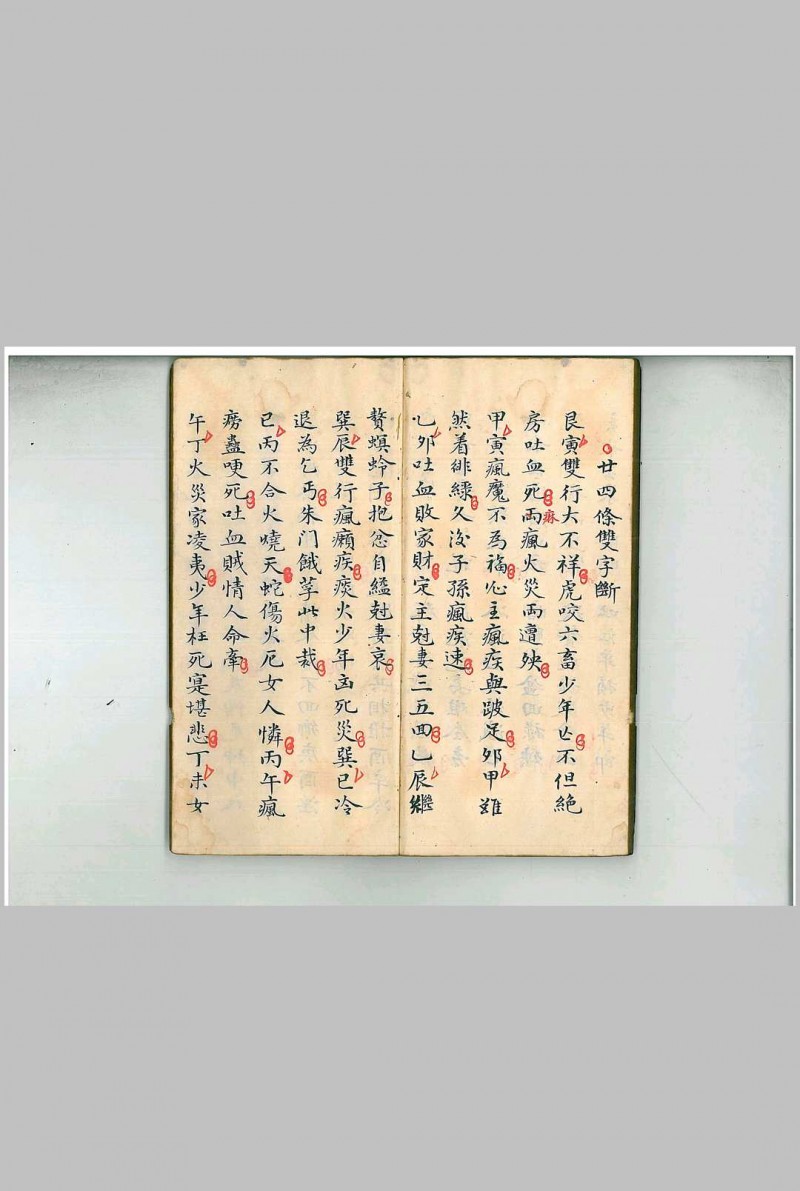 廿四條雙字斷
艮寅雙行大不祥虎咬六畜少年亡不但絕
房吐血死兩瘋火災兩遭殃
麻
甲寅瘋魔不為福必主瘋疾與跛足夘甲雖
然着緋綠久後子孫瘋疾速
乙夘吐血敗家財定主尅妻三五回乙辰繼
贅螟蛉子抱忿自縊尅妻哀
巽辰雙行瘋癩疾痰火少年凶死災巽巳冷
退為乞丐朱门餓莩此中裁
巳丙不合火燒天蛇傷火厄女人憐丙午瘋
癆蠱哽死吐血賊情人命牽
午丁火災家凌夷少年枉死寔堪悲丁未女